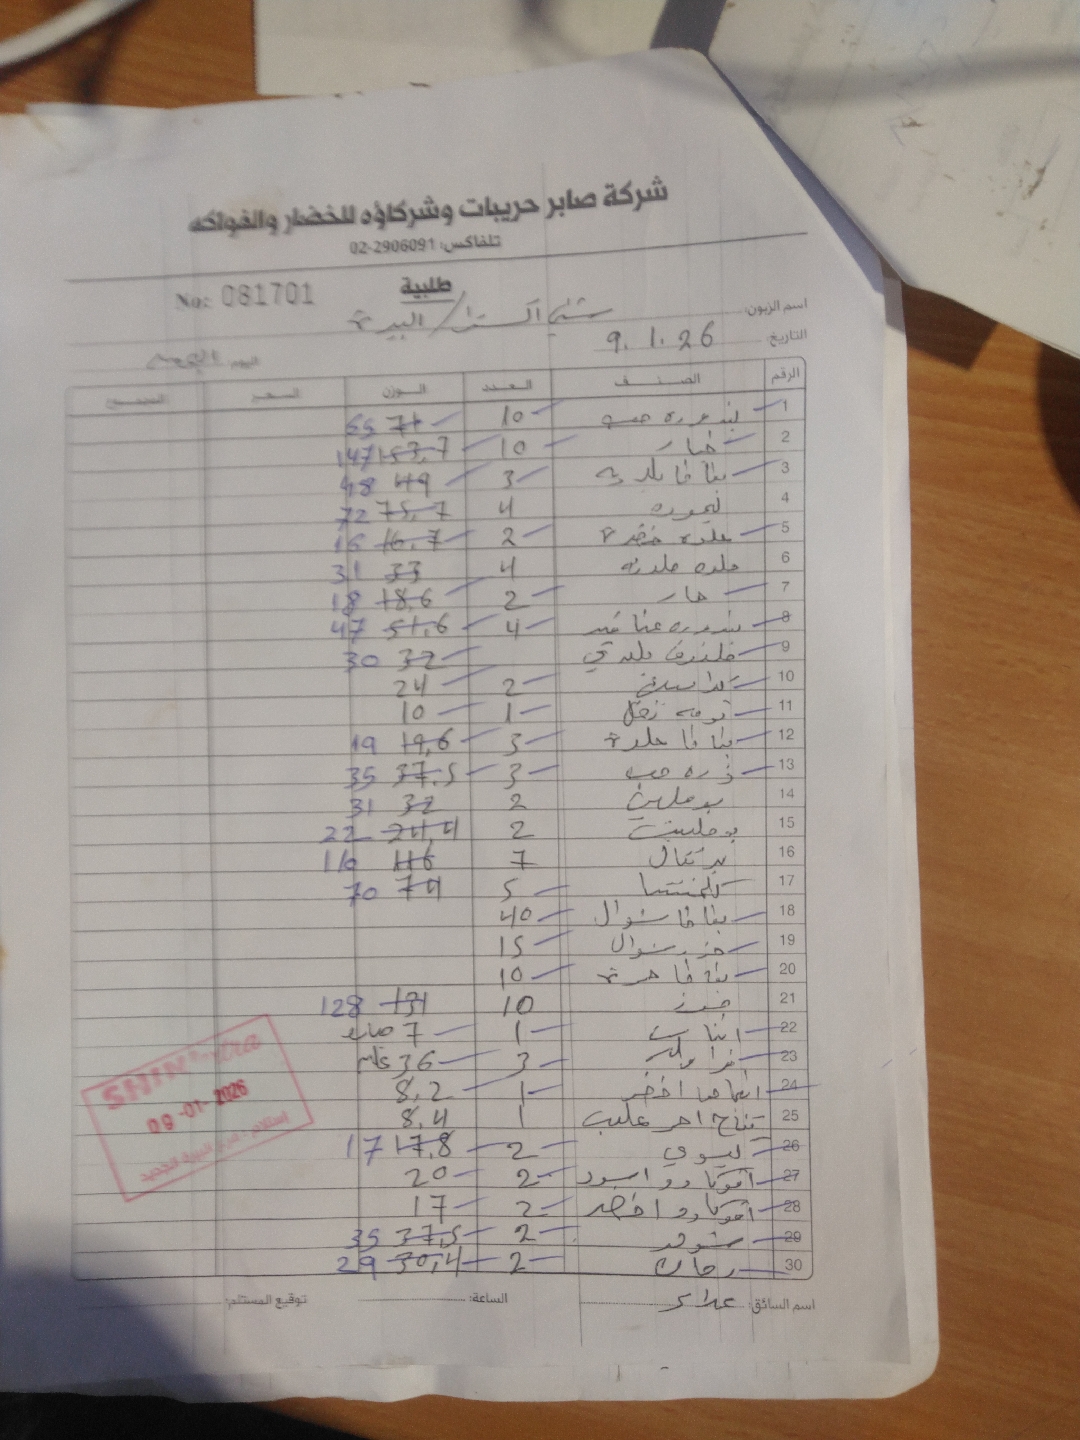 شركة صابر حريبات وشركاؤه للخضار والفواكه
تلفاكس: 02-2906091
طلبية
No: 081701
اسم الزبون: شني اكسترا / البيرة
التاريخ: 9.1.26
اليوم
الرقم الصنف العدد الوزن السعر المجموع
1 بندوره حب 10 71 65
2 خيار 10 153,7 147
3 بطاطا بلديه 3 49 48
4 ليمون 4 75,7 72
5 خضرة 2 16,7 16
6 4 33 31
7 حار 2 18,6 18
8 بندوره عناقيد 4 51,6 47
9 بلدي 32 30
10 2 24
11 تومه 1 10
12 بطاطا حلوة 3 19,6 19
13 ذره حب 3 37,5 35
14 بوملي 2 32 31
15 2 24,4 22
16 برتقال 7 116 110
17 كلمنتينا 5 74 70
18 بطاطا شوال 40
19 جزر شوال 15
20 بطاطا حمرة 10
21 موز 10 131 128
22 اناناس 1 7
23 فراوله 3 36
24 اخضر 1 8,2
25 تفاح احمر علب 1 8,4
26 كيوي 2 17,8 17
27 افوكادو اسود 2 20
28 افوكادو اخضر 2 17
29 شومر 2 37,5 35
30 رمان 2 30,4 29
SHINI extra
09-01-2026
اسم السائق: علاء
الساعة:
توقيع المستلم: